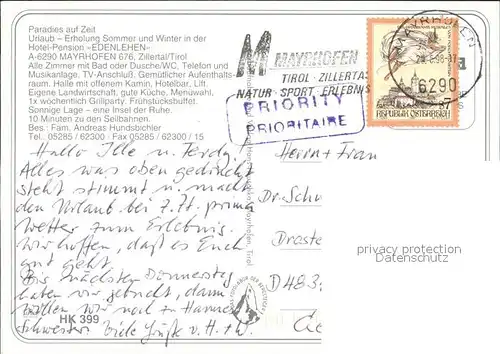 Paradies auf Zeit
Urlaub – Erholung Sommer und Winter in der
Hotel-Pension »EDENLEHEN«
A-6290 MAYRHOFEN 676, Zillertal/Tirol
Alle Zimmer mit Bad oder Dusche/WC, Telefon und
Musikanlage, TV-Anschluß. Gemütlicher Aufenthalts-
raum. Halle mit offenem Kamin, Hotelbar, Lift.
Eigene Landwirtschaft, gute Küche, Menüwahl,
1x wöchentlich Grillparty. Frühstücksbuffet.
Sonnige Lage – eine Insel der Ruhe.
10 Minuten zu den Seilbahnen.
Bes.: Fam. Andreas Hundsbichler
Tel. 05285 / 62300 Fax 05285 / 62300 / 15
MAYRHOFEN
TIROL · ZILLERTAL
NATUR · SPORT · ERLEBNIS
PRIORITY
PRIORITAIRE
MAYRHOFEN
6290
REPUBLIK ÖSTERREICH
Hallo Ille u. Ferdy.
Alles was oben gedruckt
steht stimmt u. macht
den Urlaub bei z.Zt. prima
Wetter zum Erlebnis.
Wir hoffen, daß es Euch
gut geht.
Bis nächsten Donnerstag
haben wir gebucht, dann
wollen wir noch zu Hannes
Schwester. Viele Grüße v. H. + W.
HK 399
Herrn + Frau
Dr-Schu
Droste
D483
privacy protection
Datenschutz